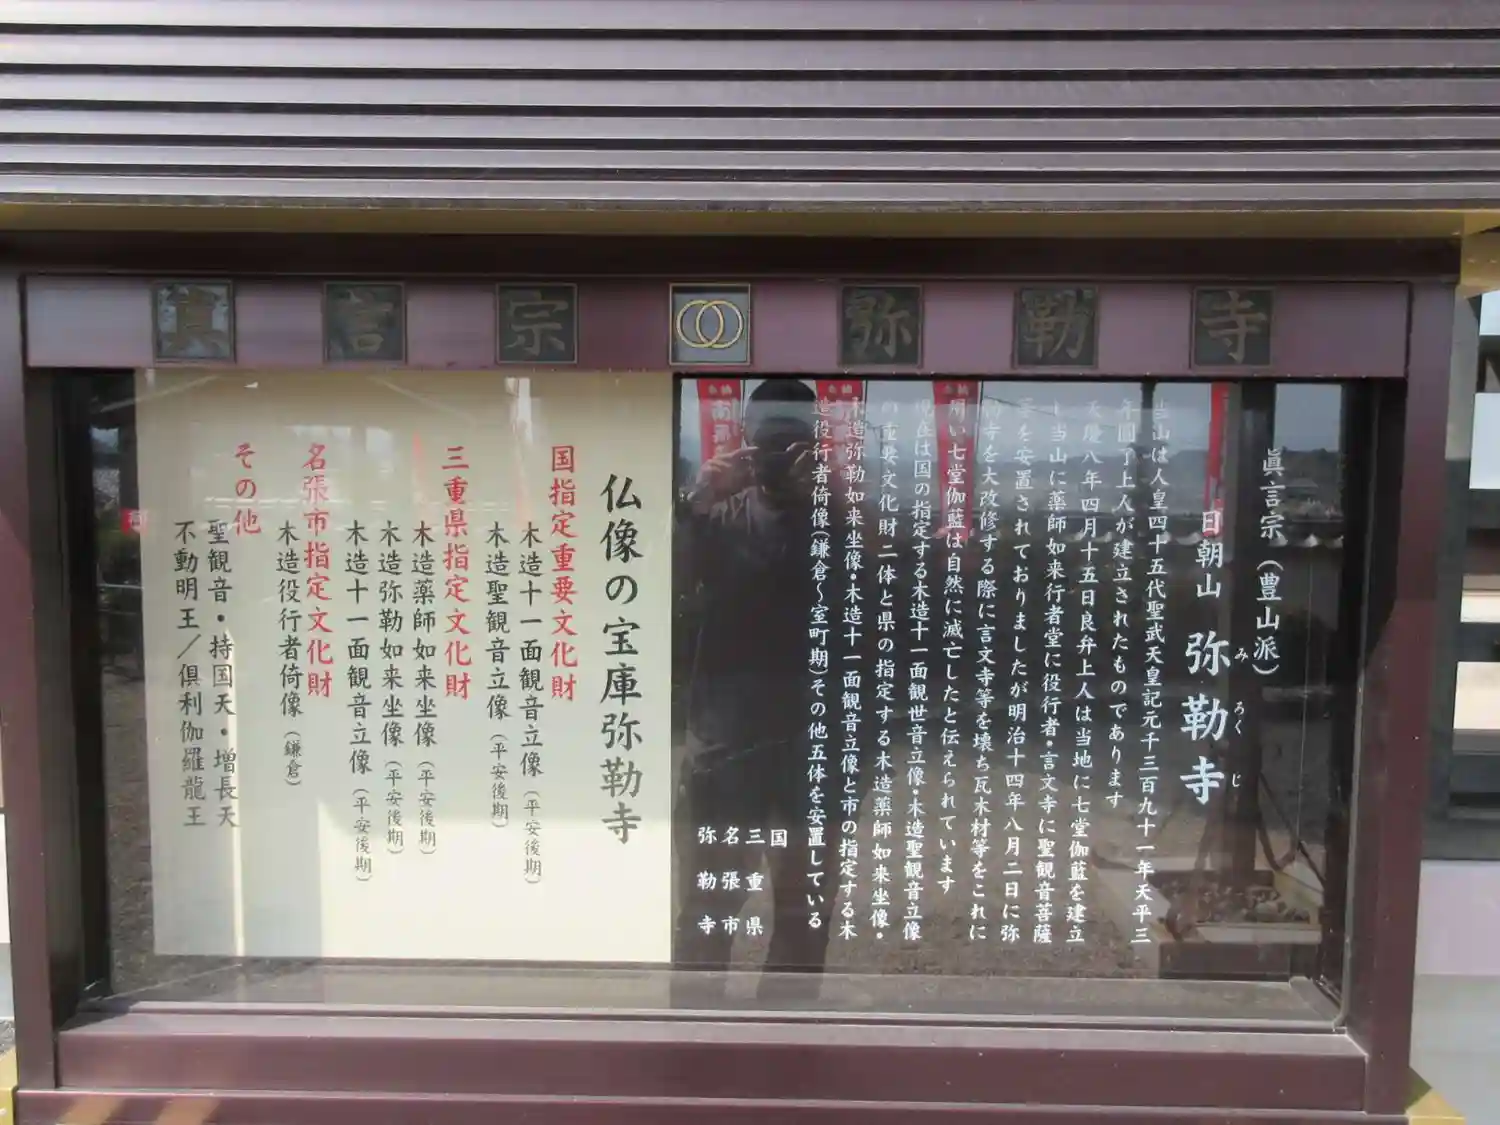 眞言宗 弥勒寺
眞言宗（豊山派）
日朝山 弥勒寺
みろくじ
当山は人皇四十五代聖武天皇記元千三百九十一年天平三
年圓了上人が建立されたものであります
天慶八年四月十五日良弁上人は当地に七堂伽藍を建立
し当山に薬師如来行者堂に役行者・言文寺に聖観音菩薩
等を安置されておりましたが明治十四年八月二日に弥
勒寺を大改修する際に言文寺等を壊ち瓦木材等をこれに
用い七堂伽藍は自然に滅亡したと伝えられています
現在は国の指定する木造十一面観世音立像・木造聖観音立像
の重要文化財二体と県の指定する木造薬師如来坐像・
木造弥勒如来坐像・木造十一面観音立像と市の指定する木
造役行者倚像（鎌倉～室町期）その他五体を安置している
国
三重県
名張市
弥勒寺
仏像の宝庫弥勒寺
国指定重要文化財
木造十一面観音立像（平安後期）
木造聖観音立像（平安後期）
三重県指定文化財
木造薬師如来坐像（平安後期）
木造弥勒如来坐像（平安後期）
木造十一面観音立像（平安後期）
名張市指定文化財
木造役行者倚像（鎌倉）
その他
聖観音・持国天・増長天
不動明王／倶利伽羅龍王